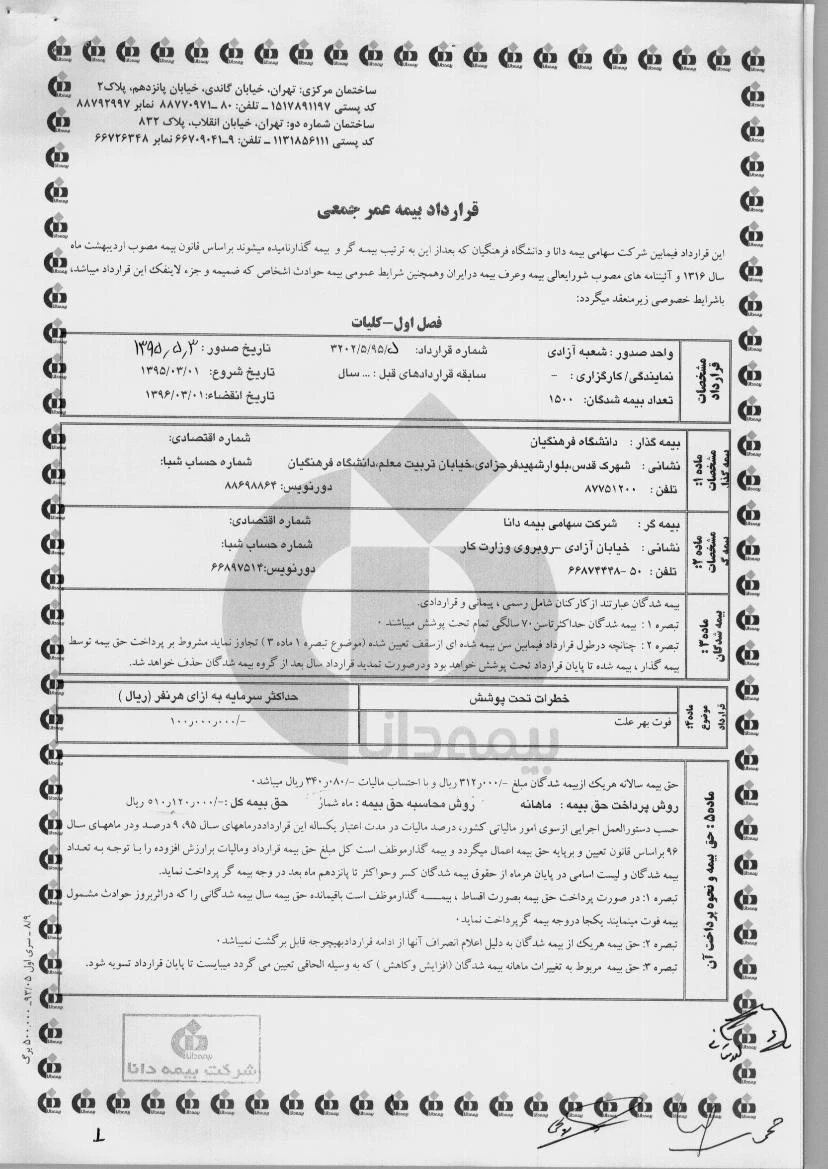 ساختمان مرکزی: تهران، خیابان گاندی، خیابان پانزدهم، پلاک۲
کد پستی ۱۵۱۷۸۹۱۱۹۷ ــ تلفن: ۸۰ ــ۸۸۷۷۰۹۷۱ نمابر ۸۸۷۹۲۹۹۷
ساختمان شماره دو: تهران، خیابان انقلاب، پلاک ۸۳۲
کد پستی ۱۱۳۱۸۵۶۱۱۱ ــ تلفن: ۹ــ۶۶۷۰۹۰۴۱ نمابر ۶۶۷۲۶۳۴۸
قرارداد بیمه عمر جمعی
این قرارداد فیمابین شرکت سهامی بیمه دانا و دانشگاه فرهنگیان که بعداز این به ترتیب بیمه گر و بیمه گذارنامیده میشوند براساس قانون بیمه مصوب اردیبهشت ماه
سال ۱۳۱۶ و آئیننامه های مصوب شورایعالی بیمه وعرف بیمه درایران وهمچنین شرایط عمومی بیمه حوادث اشخاص که ضمیمه و جزء لاینفک این قرارداد میباشد،
باشرایط خصوصی زیرمنعقد میگردد:
فصل اول-کلیات
مشخصات قرارداد
واحد صدور : شعبه آزادی شماره قرارداد: ۳۲۰۲/۵/۹۵/۵ تاریخ صدور : ۱۳۹۵,۵,۳
نمایندگی/ کارگزاری : - سابقه قراردادهای قبل : ... سال تاریخ شروع: ۱۳۹۵/۰۳/۰۱
تعداد بیمه شدگان: ۱۵۰۰ تاریخ انقضاء:۱۳۹۶/۰۳/۰۱
ماده ۱: مشخصات بیمه گذار
بیمه گذار : دانشگاه فرهنگیان شماره اقتصادی:
نشانی : شهرک قدس،بلوارشهیدفرحزادی،خیابان تربیت معلم،دانشگاه فرهنگیان شماره حساب شبا:
تلفن : ۸۷۷۵۱۲۰۰ دورنویس: ۸۸۶۹۸۸۶۴
ماده ۲: مشخصات بیمه گر
بیمه گر : شرکت سهامی بیمه دانا شماره اقتصادی:
نشانی : خیابان آزادی -روبروی وزارت کار شماره حساب شبا:
تلفن : ۵۰ -۶۶۸۷۴۴۳۸ دورنویس:۶۶۸۹۷۵۱۴
ماده ۳ : بیمه شدگان
بیمه شدگان عبارتند ازکارکنان شامل رسمی ، پیمانی و قراردادی.
تبصره ۱ : بیمه شدگان حداکثرتاسن ۷۰ سالگی تمام تحت پوشش میباشند ۰
تبصره ۲ : چنانچه درطول قرارداد فیمابین سن بیمه شده ای ازسقف تعیین شده (موضوع تبصره ۱ ماده ۳ ) تجاوز نماید مشروط بر پرداخت حق بیمه توسط
بیمه گذار ، بیمه شده تا پایان قرارداد تحت پوشش خواهد بود ودرصورت تمدید قرارداد سال بعد از گروه بیمه شدگان حذف خواهد شد.
ماده۴: موضوع قرارداد
خطرات تحت پوشش حداکثر سرمایه به ازای هرنفر (ریال )
فوت بهر علت ۱۰۰٫۰۰۰٫۰۰۰/-
ماده۵ : حق بیمه و نحوه پرداخت آن
حق بیمه سالانه هریک ازبیمه شدگان مبلغ ۳۱۲٫۰۰۰/- ریال و با احتساب مالیات ۳۴۰٫۰۸۰/- ریال میباشد۰
روش پرداخت حق بیمه : ماهانه روش محاسبه حق بیمه : ماه شمار حق بیمه کل :۵۱۰٫۱۲۰٫۰۰۰/- ریال
حسب دستورالعمل اجرایی ازسوی امور مالیاتی کشور، درصد مالیات در مدت اعتبار یکساله این قرارداددرماههای سال ۹۵، ۹ درصد ودر ماههای سال
۹۶ براساس قانون تعیین و برپایه حق بیمه اعمال میگردد و بیمه گذارموظف است کل مبلغ حق بیمه قرارداد ومالیات برارزش افزوده را با توجه به تعداد
بیمه شدگان و لیست اسامی در پایان هرماه از حقوق بیمه شدگان کسر وحواکثر تا پانزدهم ماه بعد در وجه بیمه گر پرداخت نماید.
تبصره ۱: در صورت پرداخت حق بیمه بصورت اقساط ، بیمه گذارموظف است باقیمانده حق بیمه سال بیمه شدگانی را که دراثربروز حوادث مشمول
بیمه فوت مینمایند یکجا دروجه بیمه گرپرداخت نماید۰
تبصره ۲: حق بیمه هریک از بیمه شدگان به دلیل اعلام انصراف آنها از ادامه قراردادبهیچوجه قابل برگشت نمیباشد۰
تبصره ۳: حق بیمه مربوط به تغییرات ماهانه بیمه شدگان (افزایش وکاهش ) که به وسیله الحاقی تعیین می گردد میبایست تا پایان قرارداد تسویه شود.
بیمه دانا
۸/۹ ــ سری اول ۹۳/۰۵ــ ۵۰۰,۰۰۰ برگ
بیمه دانا
شرکت بیمه دانا
۱